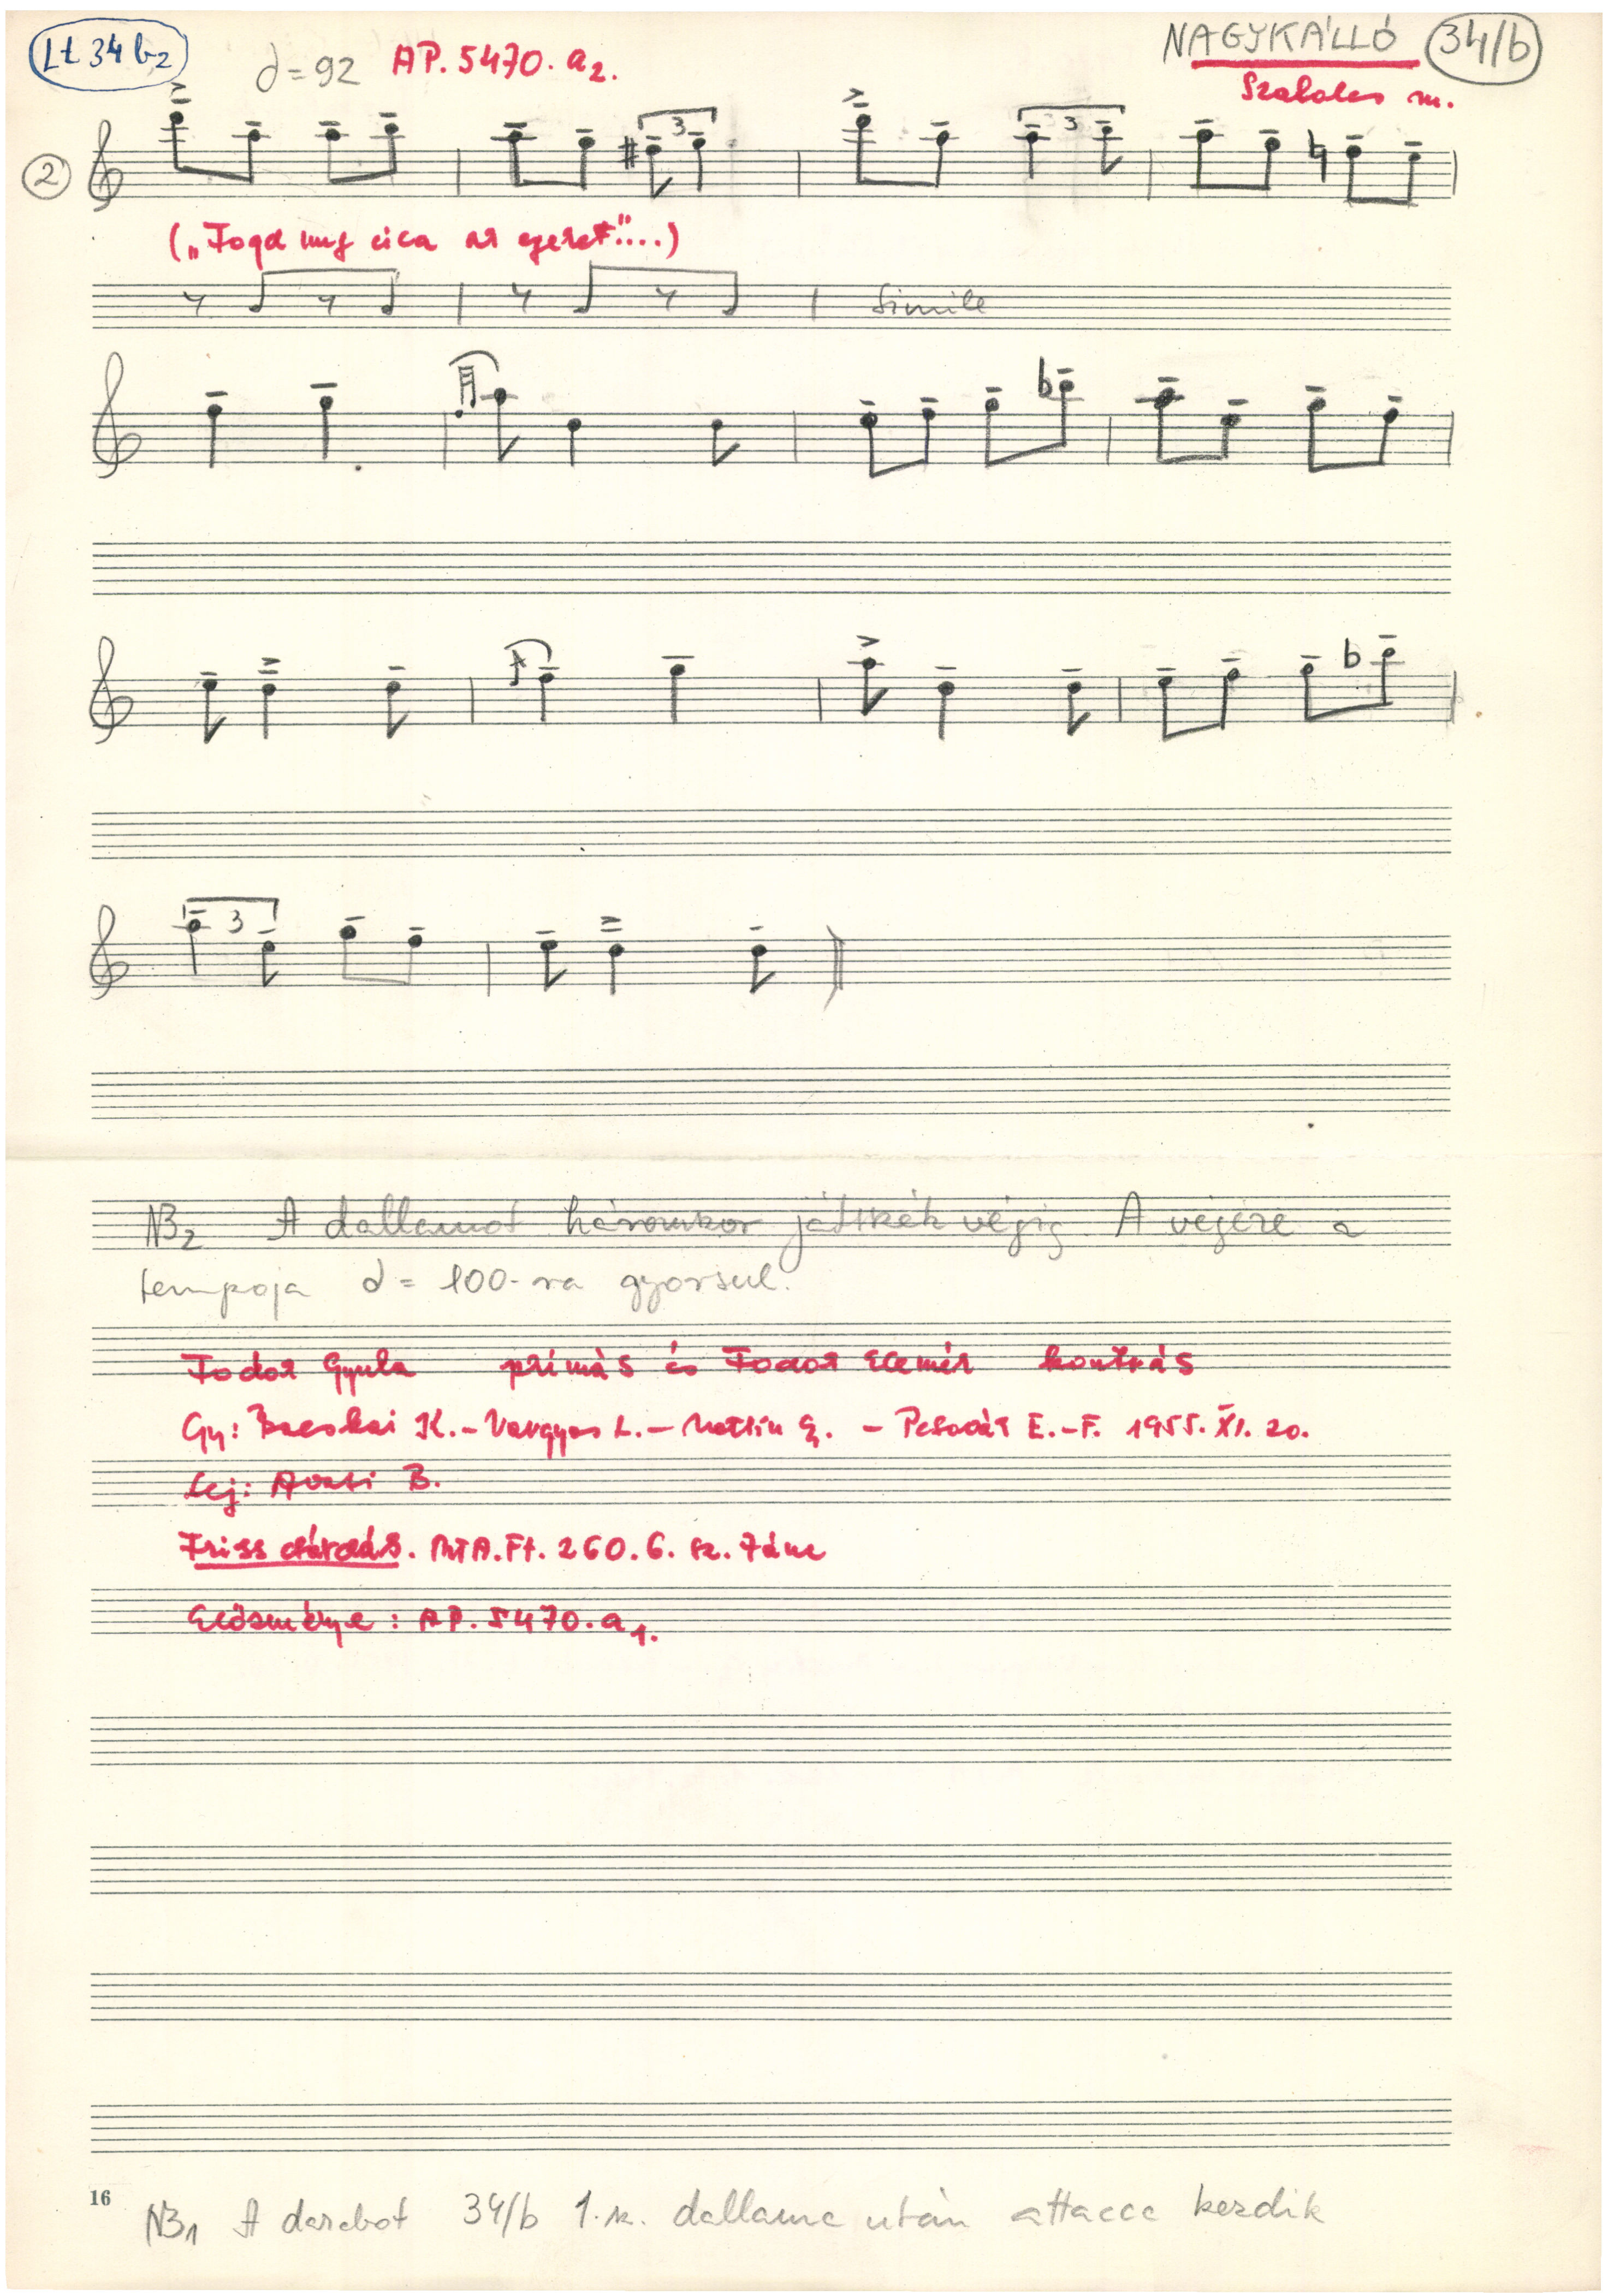 Lt 34 b2
d = 92 AP. 5470. a2.
NAGYKÁLLÓ 34/b
Szabolcs m.
2
3
3
("Fogd meg cica az egeret"....)
simile
3
NB2 A dallamot háromszor játszák végig. A végére a
tempója d = 100-ra gyorsul.
Fodor Gyula prímás és Fodor Elemér kontrás
Gy: K. - Vargyas L. - Martin Gy. - Pesovár E.-F. 1955. XI. 20.
Lej: Avasi B.
Friss csárdás. MTA. Ft. 260. 6. sz. tánc
Előzménye: AP. 5470. a1.
16
NB1 A darabot 34/b 1. sz. dallama után attacca kezdik